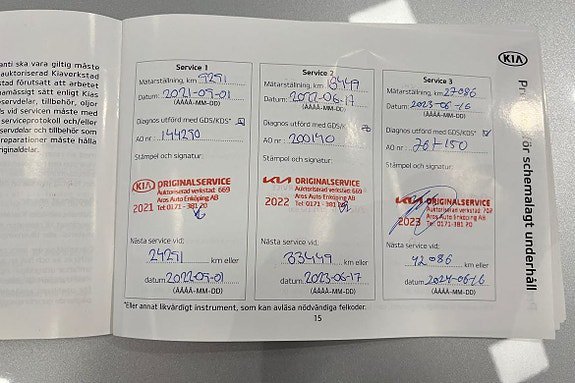 anti ska vara giltig måste
auktoriserad Kiaverkstad
d förutsatt att arbetet
namässigt sätt enligt Kias
servdelar, tillbehör, oljor
ds vid servicen måste med
serviceprotokoll och/eller
servdelar och tillbehör som
reparationer måste hålla
riginaldelar.
KIA
för schemalagt underhåll
Service 1
Mätarställning, km 9291
Datum: 2021-09-01
(ÅÅÅÅ-MM-DD)
Diagnos utförd med GDS/KDS*
AO nr: 144290
Stämpel och signatur:
KIA ORIGINALSERVICE
Auktoriserad verkstad 669
Aros Auto Enköping AB
2021 Tel: 0171-381 20
Nästa service vid:
24291 km eller
datum: 2022-09-01
(ÅÅÅÅ-MM-DD)
Service 2
Mätarställning, km 18449
Datum: 2022-06-17
(ÅÅÅÅ-MM-DD)
Diagnos utförd med GDS/KDS*
AO nr: 200140
Stämpel och signatur:
KIA ORIGINALSERVICE
Auktoriserad verkstad 669
Aros Auto Enköping AB
2022 Tel: 0171-381
Nästa service vid:
33449 km eller
datum: 2023-06-17
(ÅÅÅÅ-MM-DD)
Service 3
Mätarställning, km 27086
Datum: 2023-06-16
(ÅÅÅÅ-MM-DD)
Diagnos utförd med GDS/KDS*
AO nr:
Stämpel och signatur:
ORIGINALSERVICE
Auktoriserad verkstad 702
Aros Auto Enköping AB
2023 Tel: 0171-381
Nästa service vid:
42086 km eller
datum: 2024-06-16
(ÅÅÅÅ-MM-DD)
*Eller annat likvärdigt instrument, som kan avläsa nödvändiga felkoder.
15